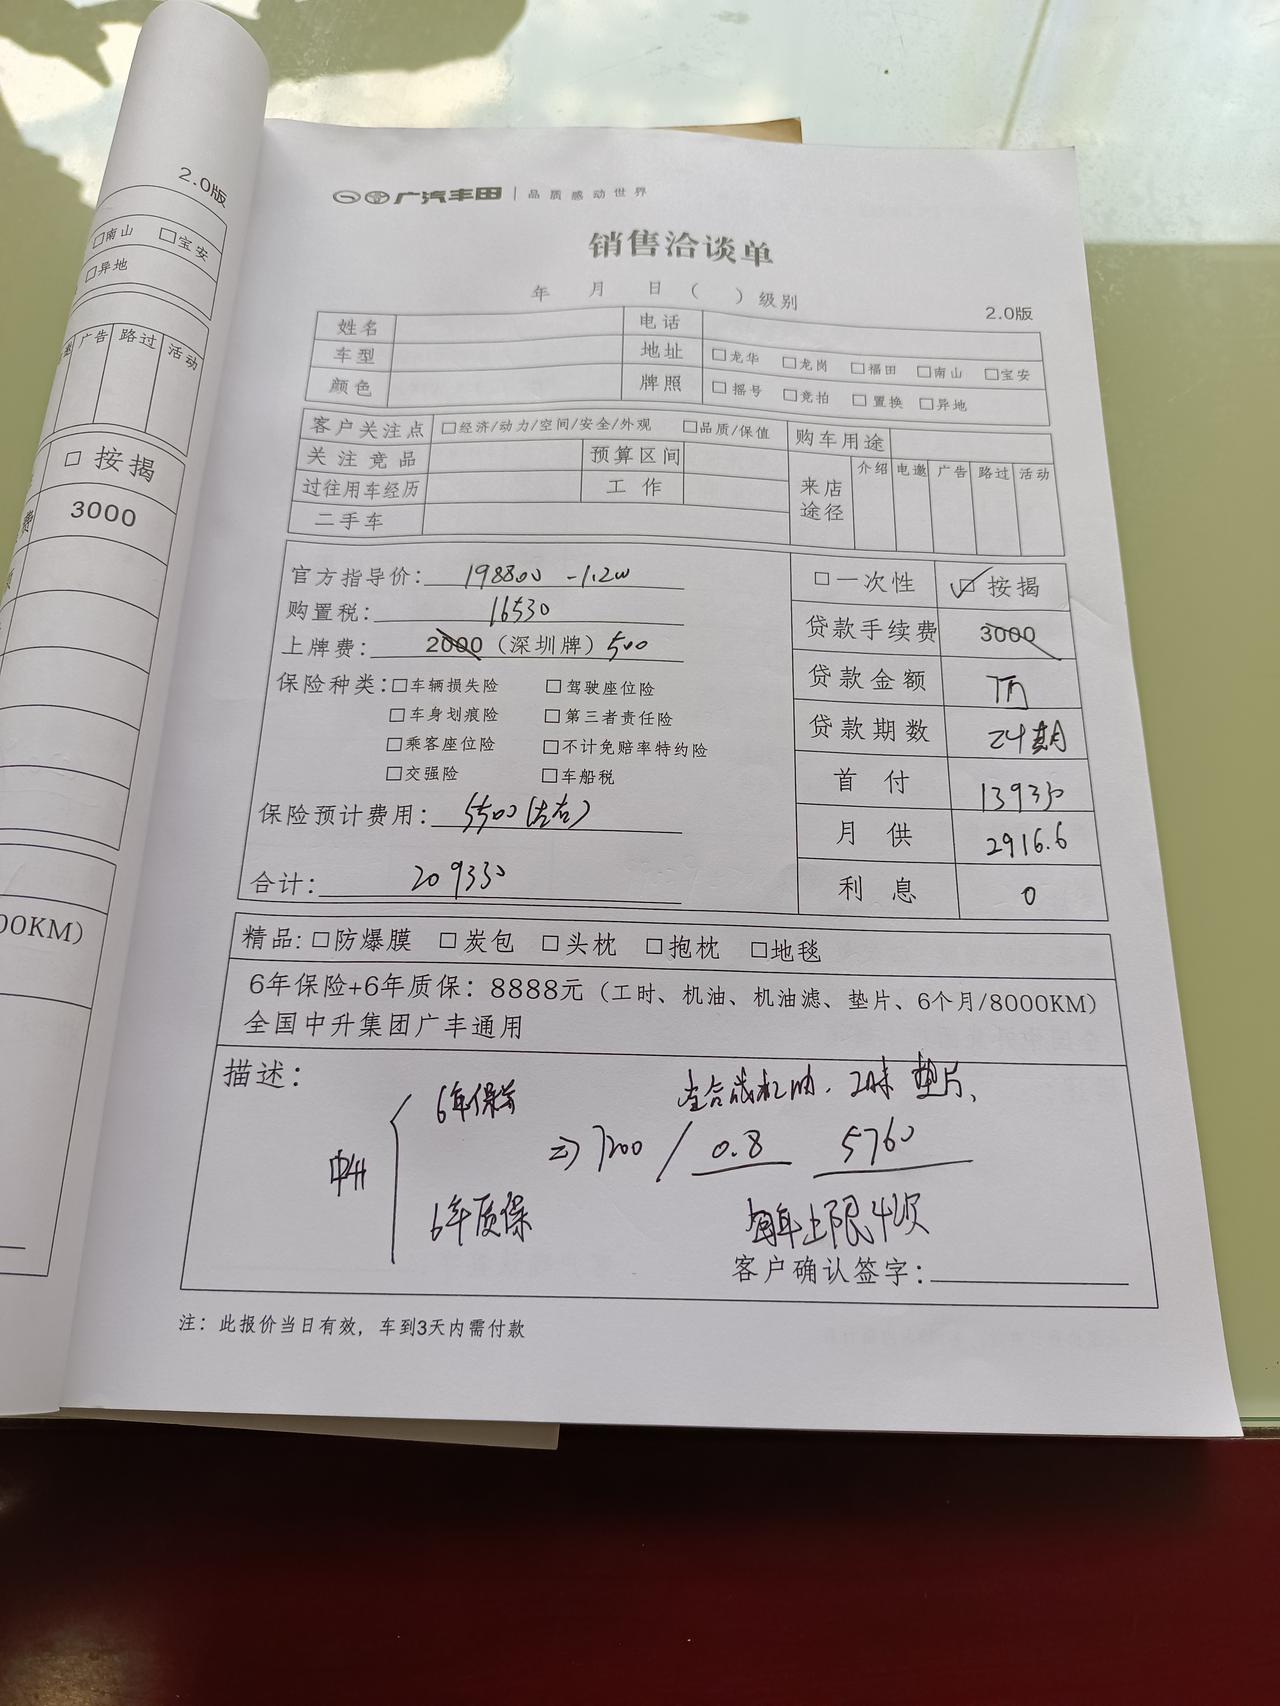 2.0版
□南山 □宝安
□异地
广告 路过 活动
□ 按揭
费 3000
00KM）
广汽丰田 | 品质感动世界
销售洽谈单
年 月 日（ ）级别 2.0版
姓名 电话
车型 地址 □龙华 □龙岗 □福田 □南山 □宝安
颜色 牌照 □摇号 □竞拍 □置换 □异地
客户关注点 □经济/动力/空间/安全/外观 □品质/保值 购车用途
关注竞品 预算区间 来店途径 介绍 电邀 广告 路过 活动
过往用车经历 工作
二手车
官方指导价：198800 -1.2w
购置税：16530
上牌费：2000（深圳牌）500
保险种类：□车辆损失险 □驾驶座位险
□车身划痕险 □第三者责任险
□乘客座位险 □不计免赔率特约险
□交强险 □车船税
保险预计费用：5500（左右）
合计：209330
□一次性 ☑按揭
贷款手续费 3000
贷款金额 7万
贷款期数 24期
首付 139330
月供 2916.6
利息 0
精品：□防爆膜 □炭包 □头枕 □抱枕 □地毯
6年保险+6年质保：8888元（工时、机油、机油滤、垫片、6个月/8000KM）
全国中升集团广丰通用
描述：
6年保养 全合成机油、工时 垫片、
中升 ⇒7200 / 0.8 5760
6年质保 每年上限4次
客户确认签字：
注：此报价当日有效，车到3天内需付款